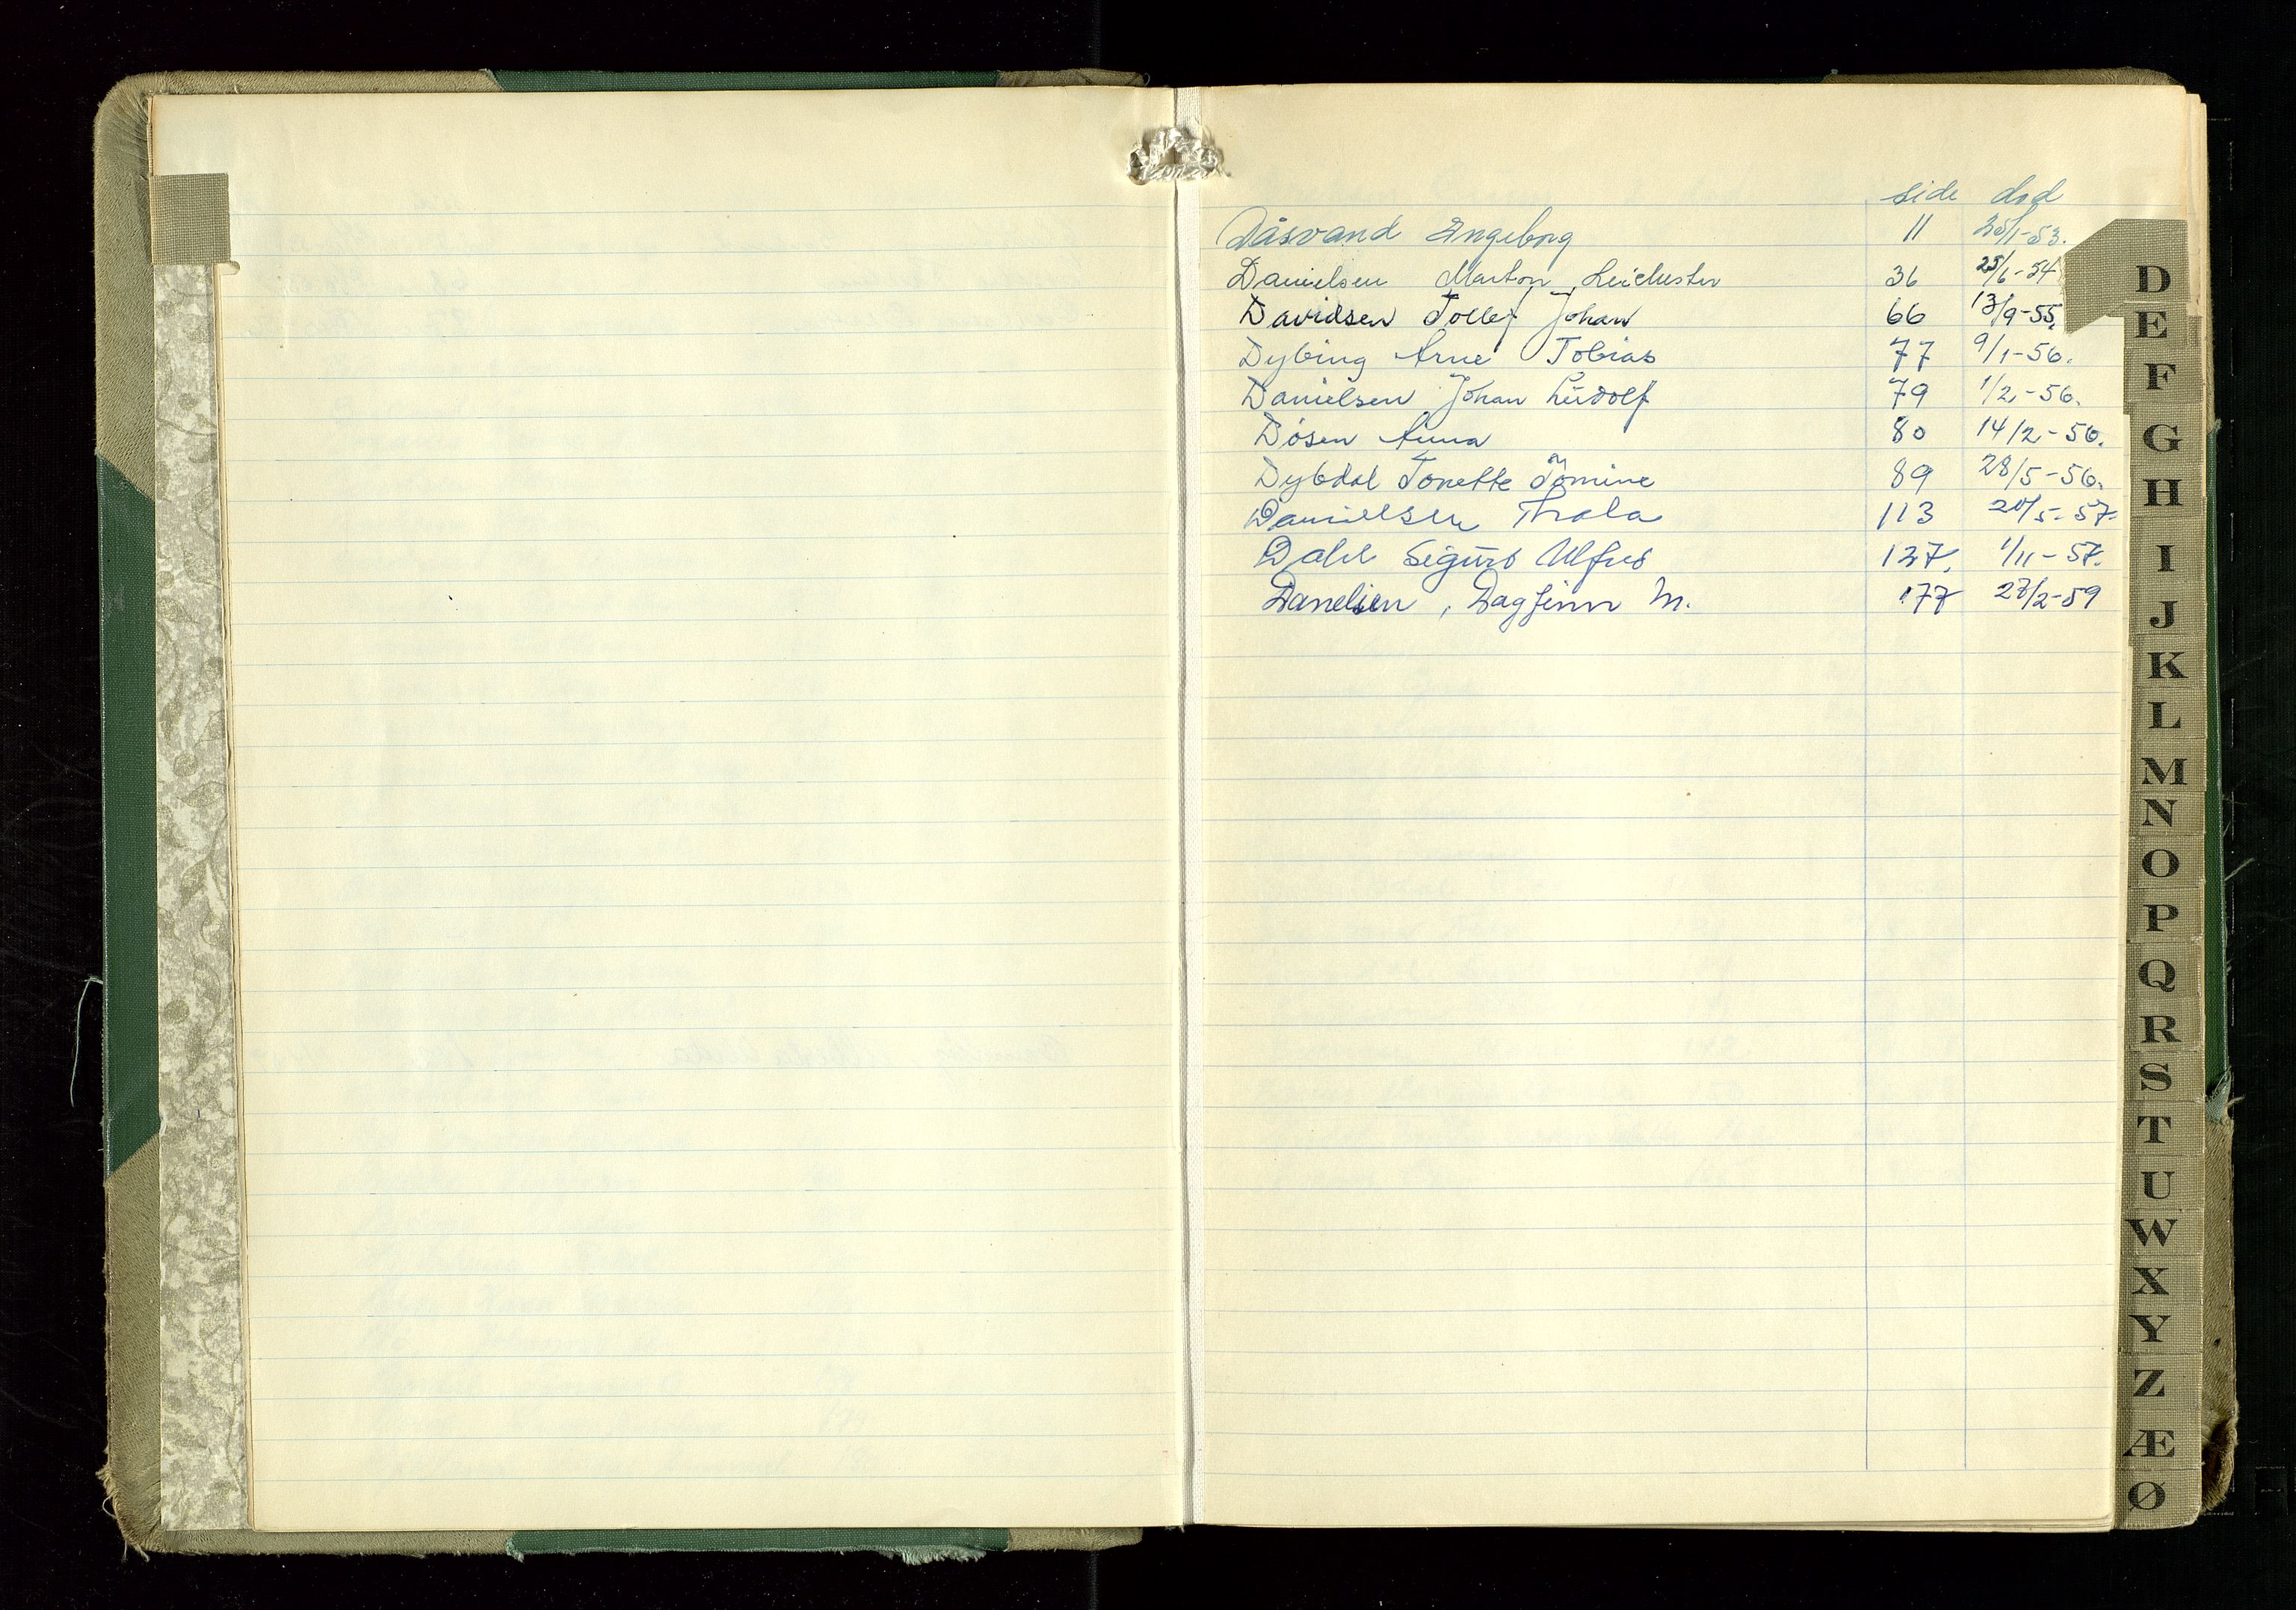 side død
Dåsvand Engeborg 11 25/1-53.
Danielsen Marton 36 25/6-54
Davidsen Tollef Johan 66 13/9-55.
Dybing Arne Tobias 77 9/1-56.
Danielsen Johan Ludolf 79 1/2.-56.
Døsen Anna 80 14/2-56.
Dybdal Tonette Tomine 89 28/5-56.
Danielsen Thala 113 20/5-57.
Dahl Sigurd Alfred 137. 1/11-57.
Danelsen, Dagfinn M. 177 27/2-59
D
E
F
G
H
I
J
K
L
M
N
O
P
Q
R
S
T
U
W
X
Y
Z
Æ
Ø